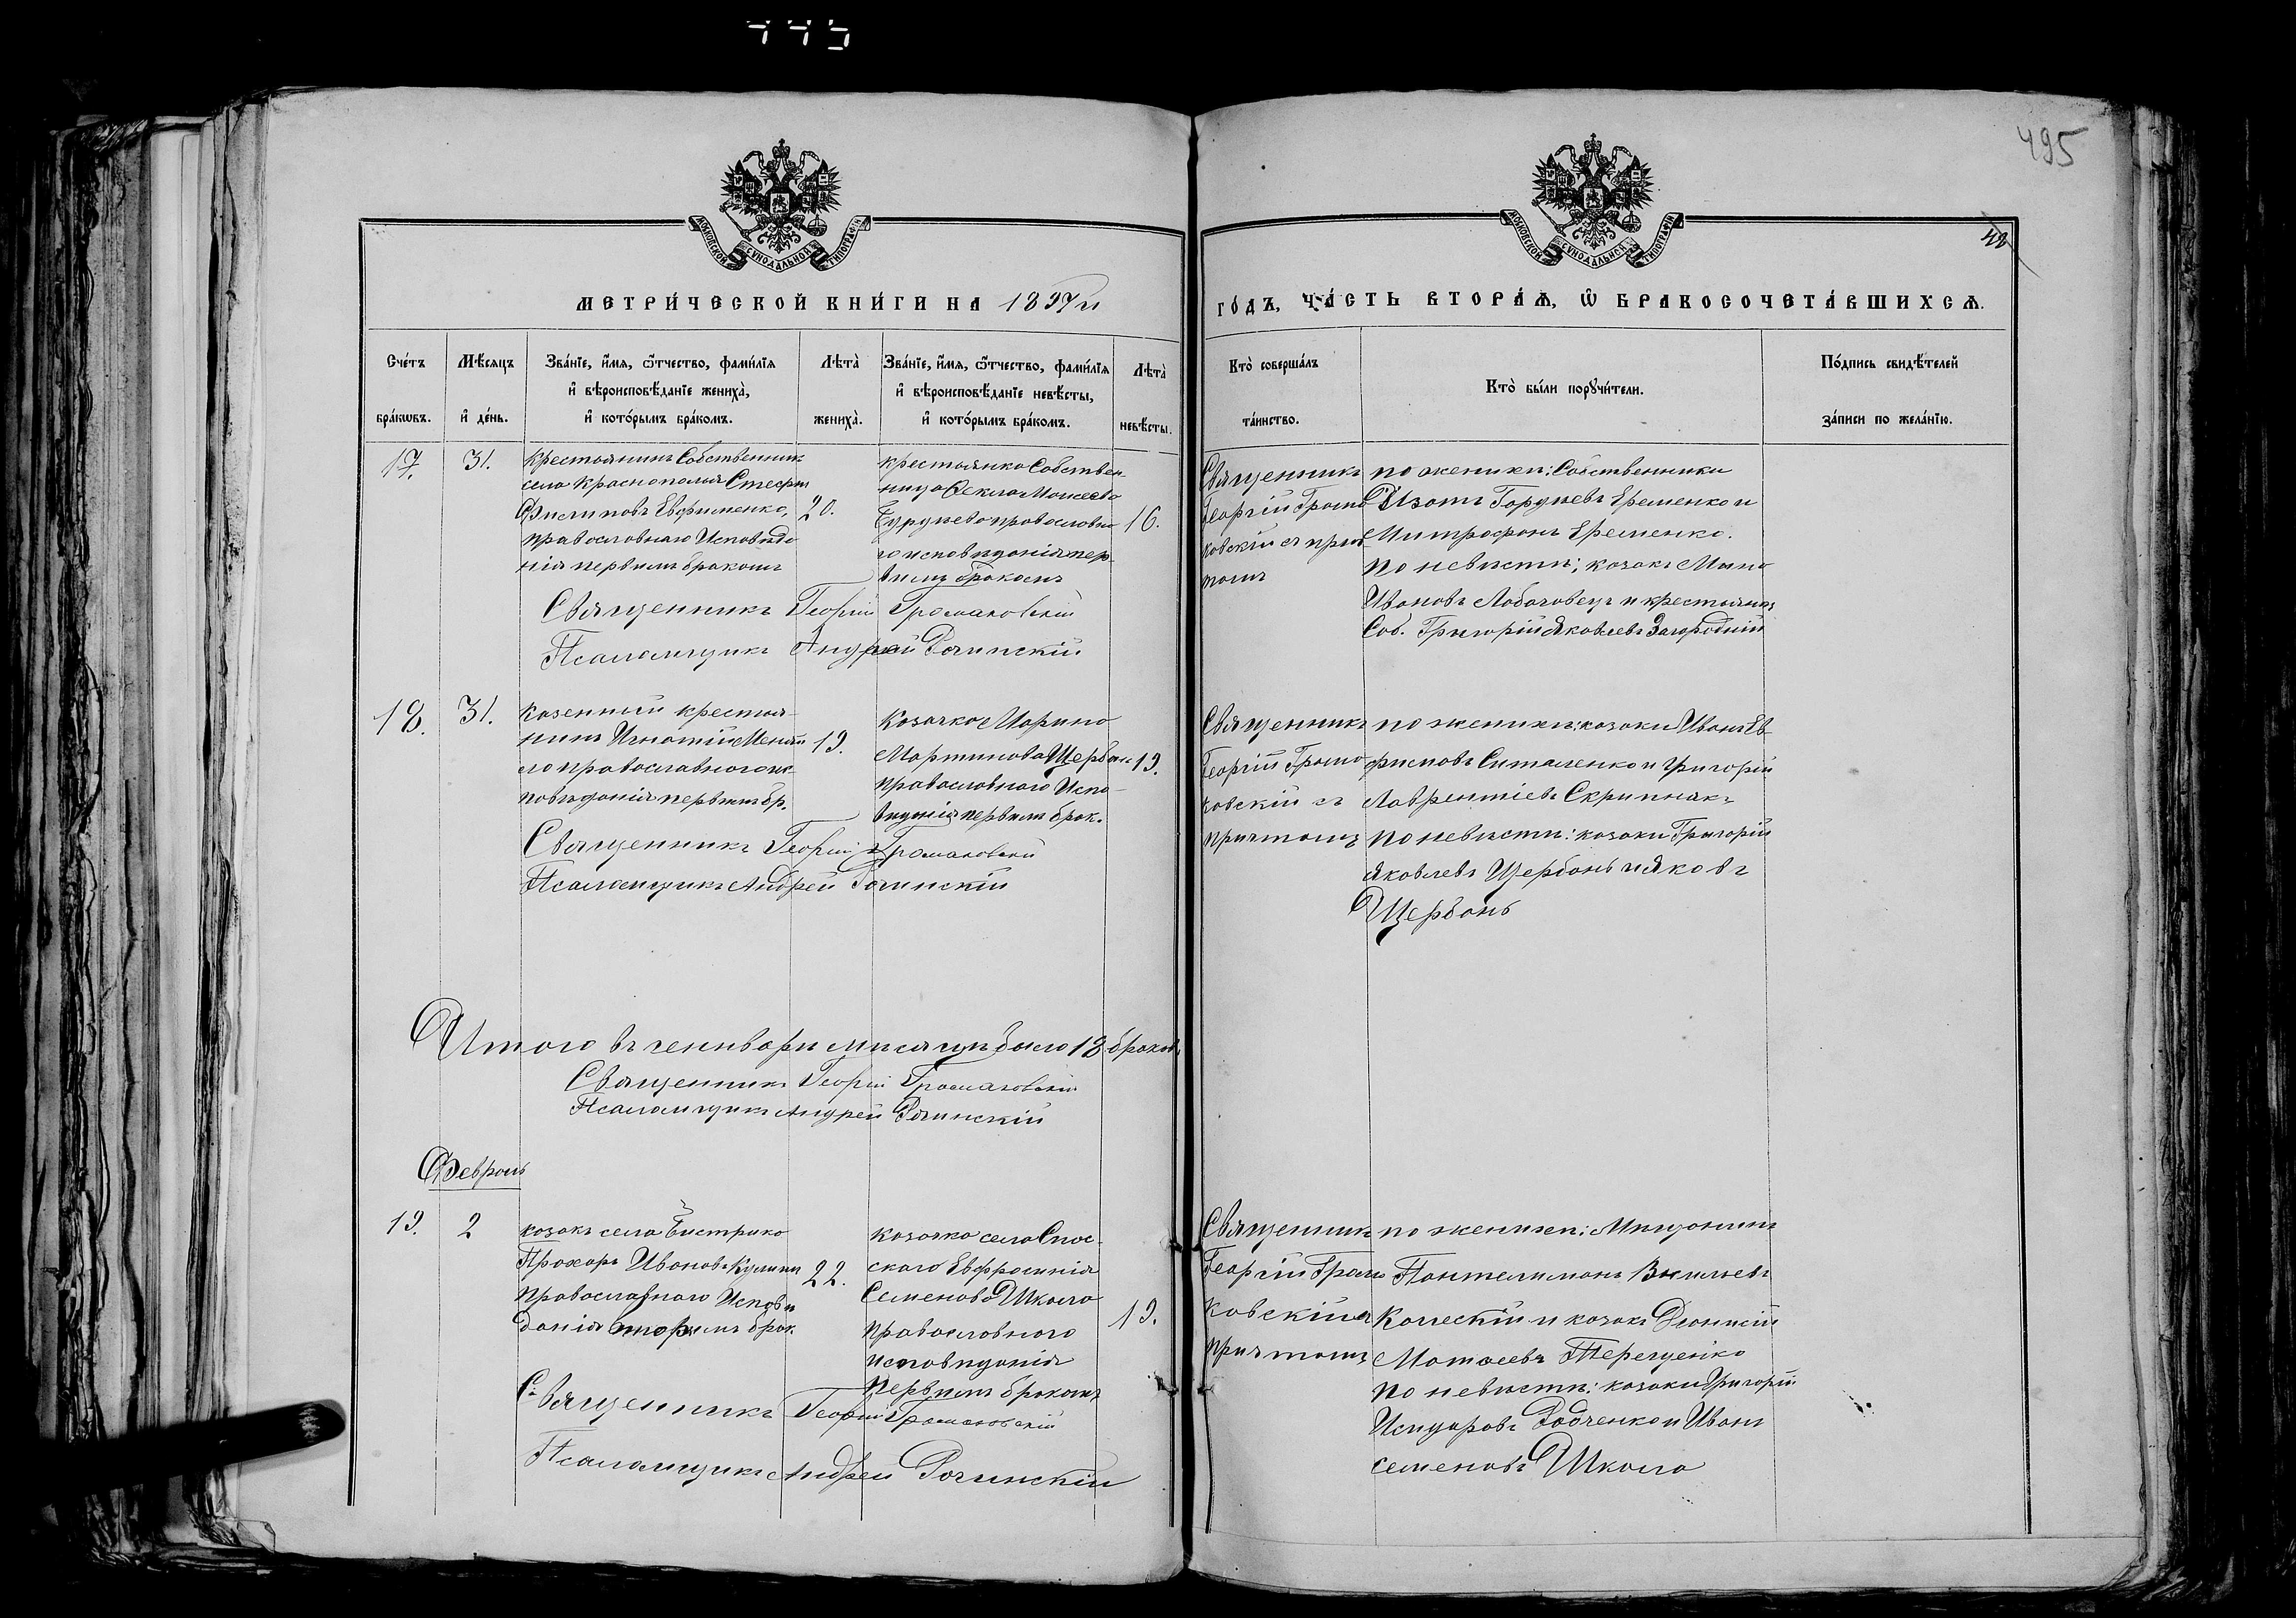 495
МОСКОВСКОЙ СУНОДАЛЬНОЙ ТИПОГРАФІИ
МОСКОВСКОЙ СУНОДАЛЬНОЙ ТИПОГРАФІИ
МЕТРИ́ЧЕСКОЙ КНИ́ГИ НА
ГО́ДЪ, ЧА́СТЬ ВТОРА́Ѧ, Ѿ БРАКОСОЧЕТА́ВШИХСѦ.
Сче́тъ бра́кѡвъ.
Мѣ́сяцъ и҆ де́нь.
Зва́нїе, и҆́мѧ, ѻ҆́тчество, фами́лїѧ и҆ вѣроисповѣ́данїе жениха̀, и҆ кото́рымъ бра́комъ.
Лѣта̀ жениха̀.
Зва́нїе, и҆́мѧ, ѻ҆́тчество, фами́лїѧ и҆ вѣроисповѣ́данїе невѣ́сты, и҆ кото́рымъ бра́комъ.
Лѣта̀ невѣ́сты.
Кто̀ соверша́лъ та́инство.
Кто̀ бы́ли порꙋчи́тели.
По́дпись свидѣ́телей за́писи по жела́нїю.
17.
31.
Крестьянинъ Собственник
села Краснополья
Филиповъ Евфименко,
православнаго Исповѣда
нія первымъ бракомъ
20.
крестьянка Собствен-
ница Фекла Моисеева
православна
го исповѣданія пер-
вымъ бракомъ
16.
Священникъ
Георгій Громо
ковскій съ прич
томъ
по женихѣ: Собственники
Изотъ Гордѣевъ Еременко и
Митрофанъ Еременко.
по невѣсти; козакъ Мина
Ивановъ и крестьянинъ
Соб. Григорій Яковлевъ Загородній
Священникъ Георгій Громаковскій
Псаломщикъ Андрей Рочинскій
18.
31.
Казенный крестья-
нинъ Игнатій
православного ис-
повѣданія первымъ бр.
19.
Козачка Марина
Мартинова Щербань
православного Испо-
вѣданія первымъ брак.
19.
Священникъ
Георгій Громо
ковскій съ
причтомъ
по женихѣ: козаки Иванъ Ев-
фимовъ Ситаленко и Григорій
Лаврентіевъ Скрипнякъ
по невѣсти: козаки Григорій
Яковлевъ Щербань и Яковъ
Щербань
Священникъ Георгій Громаковскій
Псаломщикъ Андрей Рочинскій
Итого въ генвари мисяци было 18 браков
Священникъ Георгій Громаковскій
Псаломщикъ Андрей Рочинскій
Февраль
19.
2
козакъ села Бистрика
Прохоръ Ивановъ
православнаго Исповѣ
данія вторымъ брак.
22.
козачка села Спас-
скаго Евфросинія
Семенова Школа
православного
исповѣданія
первымъ бракомъ
19.
Священникъ
Георгій Громо
ковскій съ
причтомъ
по женихѣ: Мищанинъ
Пантелимонъ
и козакъ Діонисій
Матвеевъ Терещенко
по невѣсти: козаки Григорій
Исидоровъ Радченко и Иванъ
Семеновъ Школа
Священникъ Георгій Громаковскій
Псаломщикъ Андрей Рочинскій